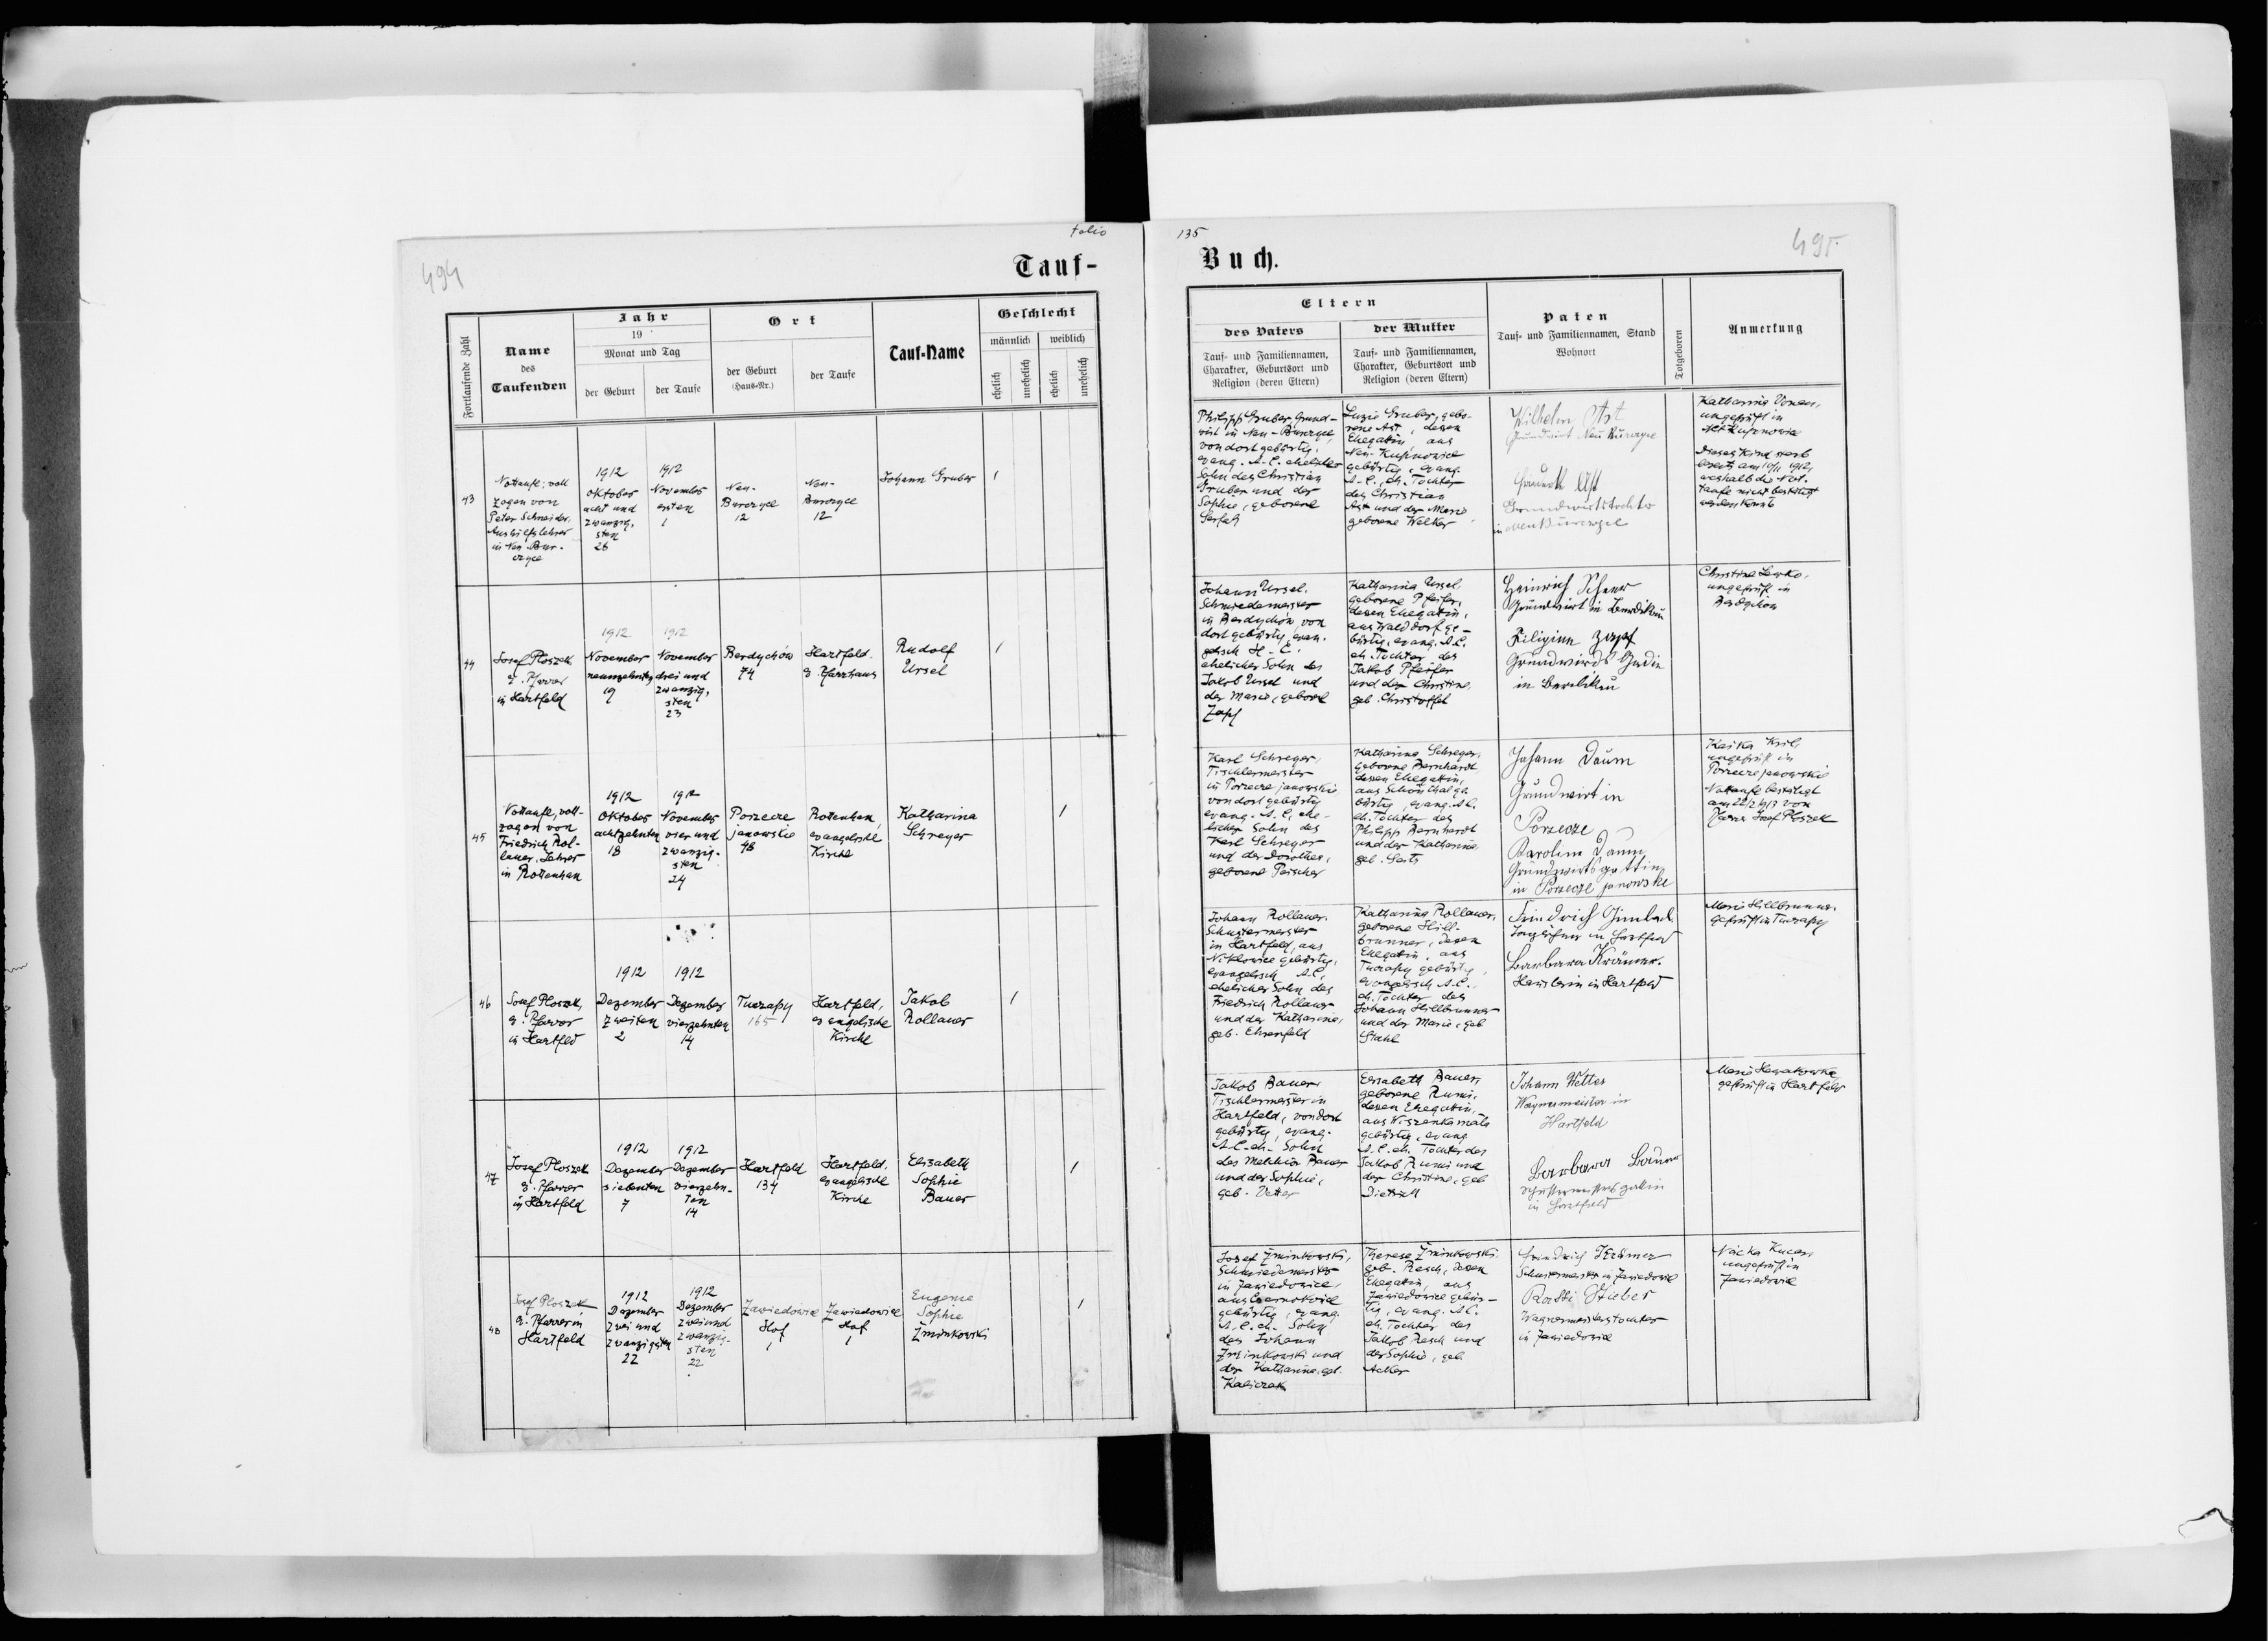 folio
135
494
495
Tauf-
Buch.
Fortlaufende Zahl
Name
des
Taufenden
Jahr
19
Monat und Tag
der Geburt
der Taufe
Ort
der Geburt
(Haus-Nr.)
der Taufe
Tauf-Name
Geschlecht
männlich
weiblich
ehelich
unehelich
ehelich
unehelich
Eltern
des Vaters
Tauf- und Familiennamen,
Charakter, Geburtsort und
Religion (deren Eltern)
der Mutter
Tauf- und Familiennamen,
Charakter, Geburtsort und
Religion (deren Eltern)
Paten
Tauf- und Familiennamen, Stand
Wohnort
Totgeboren
Anmerkung
43
Nottaufe, voll
zogen von
Peter Schneider,
Aushilfslehrer
in Neu-Bur-
1912
Oktober
acht und
zwanzig-
sten
1912
November
ersten
1
Neu-
Burczyce
12
Neu-
Burczyce
12
Johann Gruber
1
Philipp Gruber, Grund-
wirt in Neu-Burczyce,
von dort gebürtig,
evang. A.C. ehelicher
Sohn des Christian
Gruber und der
Sophie, geborene
Luzie Gruber, gebo-
rene Ast, dessen
Ehegattin, aus
Neu-Kupnowice
gebürtig, evang.
A.C., eh. Tochter
des Christian
Ast und der Marie
geborene Welker
Wilhelm Ast
Grundwirt Neu Burczyce
Grundwirtstochter
in
Katharina
ungeprüft in
Alt Kupnowice
Dieses Kind starb
bereits am
weshalb die Not-
taufe nicht bestätigt
werden konnte
44
Josef Ploszek
e. Pfarrer
in Hartfeld
1912
November
neunzehnten
19
1912
November
drei und
zwanzig-
sten
23
Berdychów
74
Hartfeld.
e. Pfarrhaus
Rudolf
Ursel
1
Johann Ursel.
Schmiedemeister
in Berdychów, von
dort gebürtig, evan-
gelisch H.C.
ehelicher Sohn des
Jakob Ursel und
der Marie, geborene
Zapf
Katharina Ursel,
geborene Pfeifer,
dessen Ehegattin,
aus Walddorf ge-
bürtig, evang. A.C.
eh. Tochter des
Jakob Pfeifer
und der Christine,
geb. Christoffel
Heinrich Scherer
Grundwirt in
Zapf
in
Christine
ungeprüft in
45
Nottaufe, voll-
zogen von
Friedrich Rol-
lauer, Lehrer
in Rottenhan
1912
Oktober
achtzehnten
18
1912
November
vier und
zwanzig-
sten
24
Porzecze
janowskie
48
Rottenhan,
evangelische
Kirche
Katharina
Schreyer
1
Karl Schreyer,
Tischlermeister
in Porzecze janowskie
von dort gebürtig
evang. A.C., ehe-
licher Sohn des
Karl Schreyer
und der Dorothea,
geborene Reischer
Katharina Schreyer,
geborene Bernhardt
dessen Ehegattin,
aus Schönthal ge-
bürtig, evang. A.C.
eh. Tochter des
Philipp Bernhardt
und der Katharina
geb.
Johann Daum
Grundwirt in
Porzecze
Karolina Daum
Grundwirtsgattin
in Porzecze janowskie
Kaśka
ungeprüft in
Porzecze janowskie
Nottaufe bestätigt
am von
Pfarrer Josef Ploszek
46
Josef Ploszek,
e. Pfarrer
in Hartfeld
1912
Dezember
zweiten
2
1912
Dezember
vierzehnten
14
Tuczapy
165
Hartfeld,
evangelische
Kirche
Jakob
Rollauer
1
Johann Rollauer,
Schustermeister
in Hartfeld, aus
Niklowice gebürtig,
evangelisch A.C.
ehelicher Sohn des
Friedrich Rollauer
und der Katharine,
geb. Ehrenfeld
Katharina Rollauer,
geborene Hill-
brunner, dessen
Ehegattin, aus
Tuczapy gebürtig,
evangelisch A.C.,
eh. Tochter des
Johann Hillbrunner
und der Marie, geb
Stahl
Friedrich
in Hartfeld
Barbara Krämer.
Häuslerin in Hartfeld
Marie Hillbrunner,
geprüft in Tuczapy
47
Josef Ploszek
e. Pfarrer
in Hartfeld
1912
Dezember
siebenten
7
1912
Dezember
vierzehn-
ten
14
Hartfeld
134
Hartfeld.
evangelische
Kirche
Elisabeth
Sophie
Bauer
1
Jakob Bauer,
Tischlermeister in
Hartfeld, von dort
gebürtig, evang.
A.C. eh. Sohn
des Melchior Bauer
und der Sophie,
geb. Vetter
Elisabeth Bauer,
geborene Rumi,
dessen Ehegattin,
aus Wiszenka mała
gebürtig, evang.
A.C. eh. Tochter des
Jakob Rumi und
der Christine, geb
Dietrich
Johann Vetter
Wagnermeister in
Hartfeld
Barbara Bauer
Schustermeistersgattin
in Hartfeld
Marie
geprüft in Hartfeld
48
Josef Ploszek
e. Pfarrer in
Hartfeld
1912
Dezember
zwei und
zwanzigsten
22
1912
Dezember
zwei und
zwanzig-
sten
22
Zawiedowice
Hof
1
Zawiedowice
Hof
1
Eugenie
Sophie
Żminkowski
1
Josef Żminkowski,
Schmiedemeister
in Zawiedowice,
aus
gebürtig, evang.
A.C. eh. Sohn
des Johann
Żminkowski und
der Katharine, geb.
Kaliczak
Therese Żminkowski
geb. Resch, dessen
Ehegattin, aus
Zawiedowice gebür-
tig, evang. A.C.
eh. Tochter des
Jakob Resch und
der Sophie, geb.
Acker
Friedrich Krämer
Schustermeister in Zawiedowice
Stieber
Wagnermeisterstochter
in Zawiedowice
Naćka
ungeprüft in
Zawiedowice